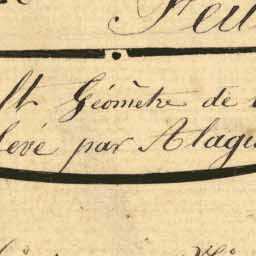 Feui
lt Géomètre de
levé par Alagu